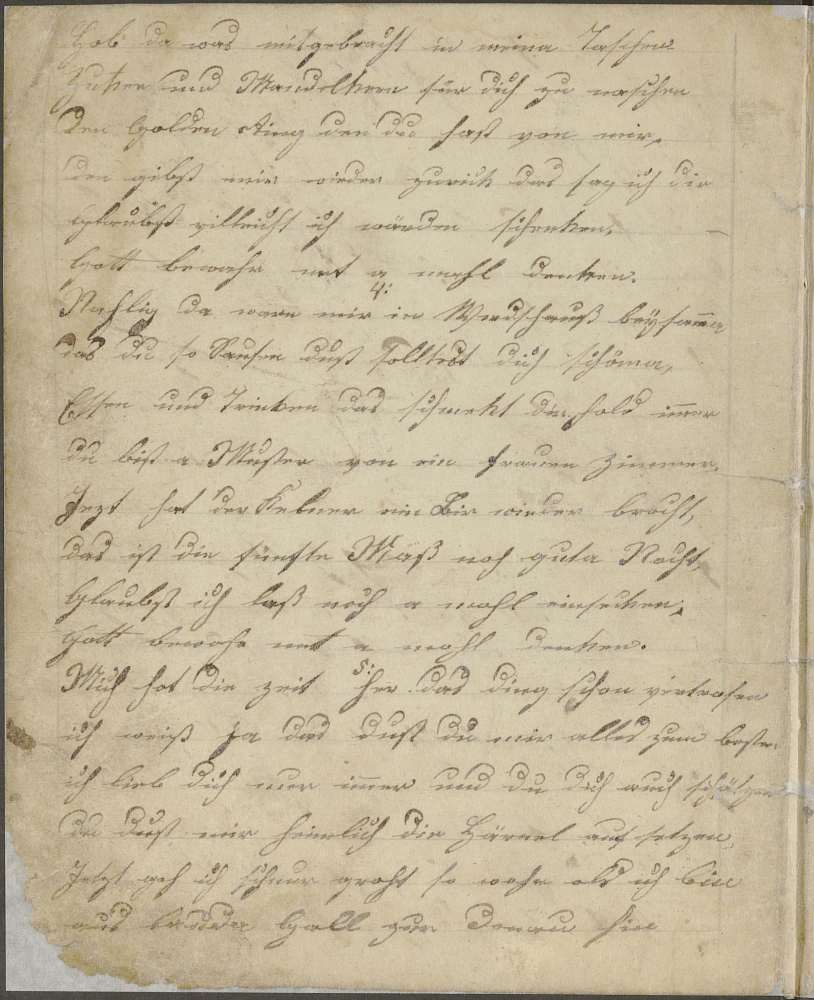 Hob da was mitgebracht in meina Taschen
Zuker und Mandelkern für dich zu naschen
Den Golden Ring den du hast von mir,
den gibst mir wieder zurück das sag ich dir
Glaubst villeicht ich würden schenken,
Gott bewahr net a mahl denken.
4:
Nachlig da warn mir in Wirdshauß beysamm
das du so Saufen dust solltest dich schöma,
Essen und Trinken das schmekt der hold immer
du bist a Muster von ein Frauen Zimmer.
Jezt hat der Kelner ein Bir wieder bracht,
das ist die fünfte Maß noh guta Nacht,
Glaubst ich laß noch a mahl einschenken,
Gott bewahr net a mahl denken.
5:
Mich hat die zeit her das ding schon vertrosen
ich weiß ja das dust du mir alles zum
ich lieb dich nur immer und du dich auch schätzen
du dust mir heimlich die Härnel auf setzen
Jetzt geh ich schnur groht so wahr als ich bin
aus lauter Gall zur Donau hin